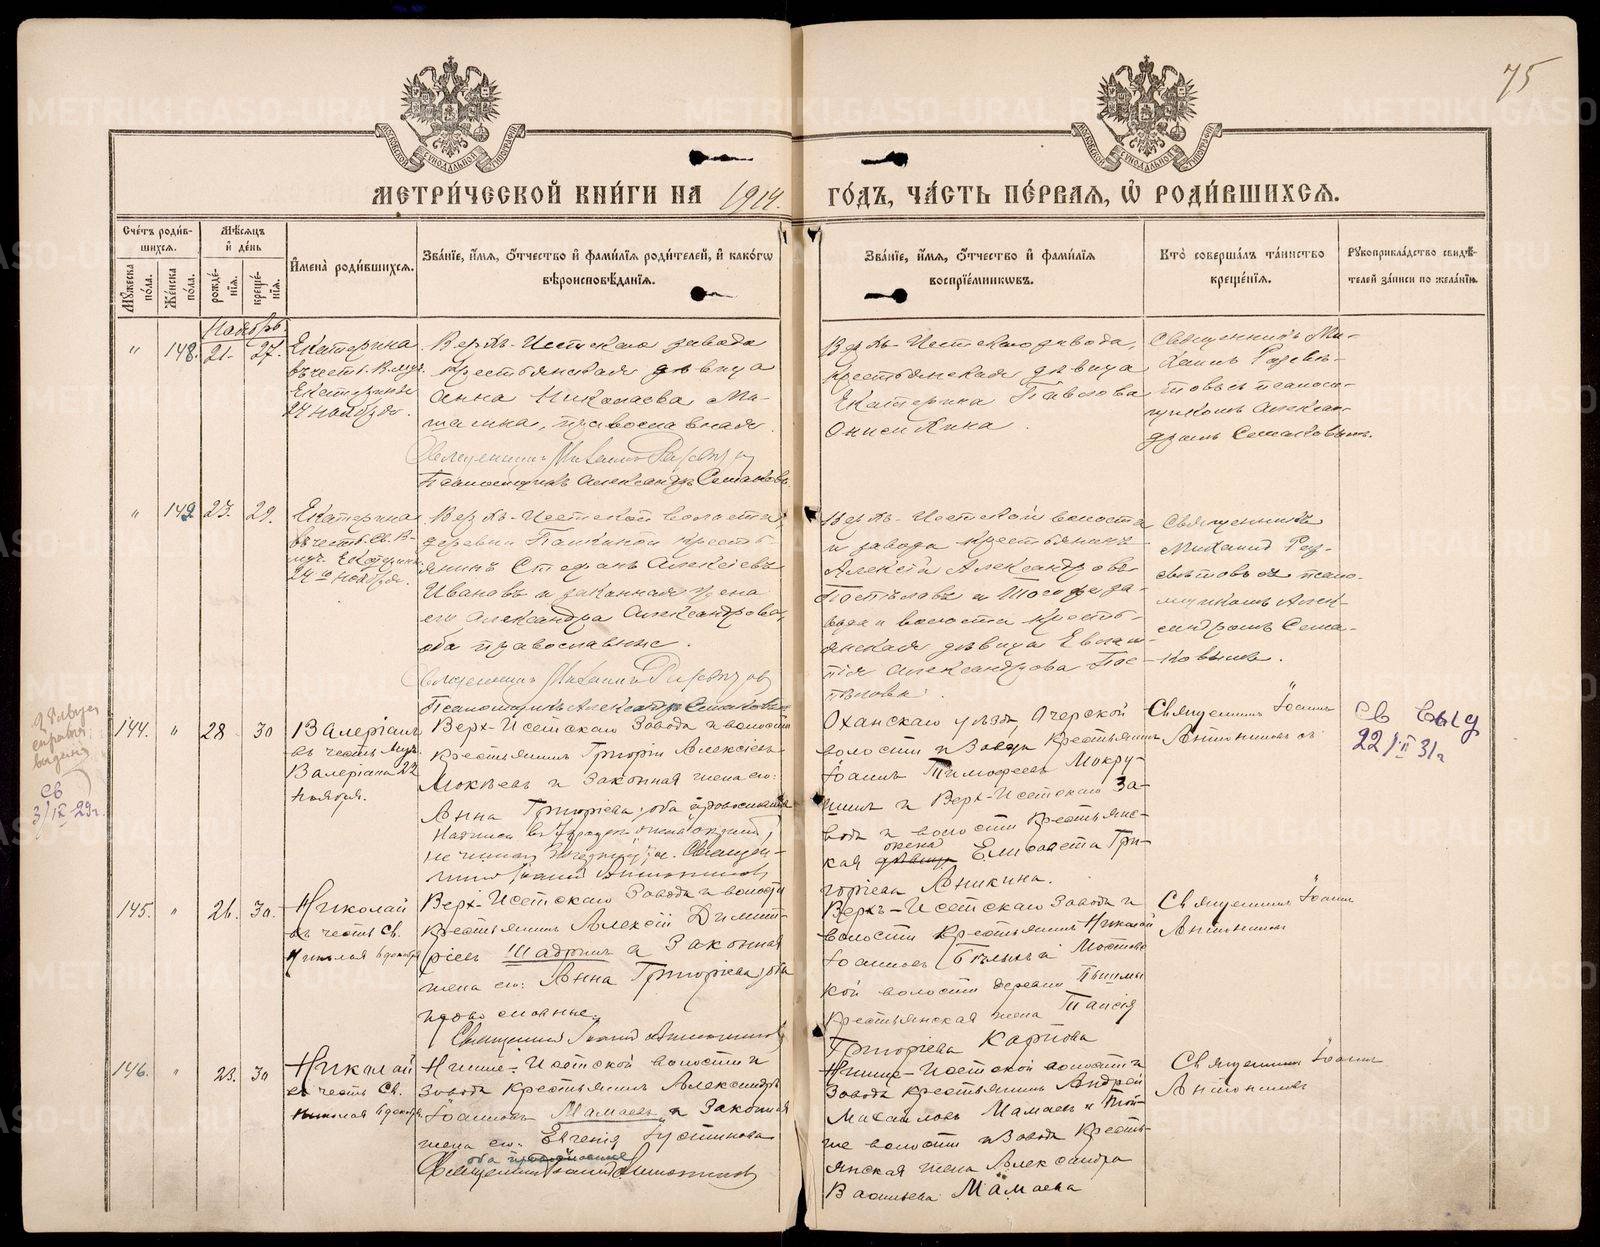 75
МЕТРИ́ЧЕСКОЙ КНИ́ГИ НА 1914. ГО́ДЪ, ЧА́СТЬ ПЕ́РВАЯ, Ѽ РОДИ́ВШИХСЯ.
Сче́тъ роди́в-
шихся.
Мꙋ́жеска по́ла.
Же́нска по́ла.
Мѣ́сяцъ
и҆ де́нь
рожде́-
нїя.
креще́-
нїя.
И҆мена̀ роди́вшихся.
Зва́нїе, и҆́мя, ѻ҆́тчество и҆ фами́лїя роди́телей, и҆ како́гѡ
вѣроисповѣ́данїя.
Зва́нїе, и҆́мя, ѻ҆́тчество и҆ фами́лїя
воспрїе́мникѡвъ.
Кто̀ соверша́лъ та́инство
креще́нїя.
Рꙋкоприкла́дство свидѣ́-
телей за́писи по жела́нїю.
Ноябрь.
" 148. 21. 27.
Екатерина
въ честь В. муч.
Екатерины
24 ноября.
Верхъ-Исетскаго завода
крестьянская дѣвица
Анна Николаева Ма-
православная.
Священникъ Михаилъ
Псаломщикъ Александръ Семаковъ.
Верхъ-Исетскаго завода,
крестьянская дѣвица
Екатерина Павлова
Онисимкина.
Священникъ Ми-
хаилъ
товъ съ псалом-
щикомъ Алексан-
дромъ Семаковымъ.
" 149 23. 29.
Екатерина
въ честь Св. В-
муч. Екатерины
24го ноября.
Верхъ-Исетской волости,
деревни Палкиной кресть-
янинъ Стефанъ Алексѣевъ
Ивановъ и законная жена
его Александра Александрова,
оба православные.
Священникъ Михаилъ
Псаломщикъ Александръ Семаковъ
Верхъ-Исетской волости
и завода крестьянинъ
Алексѣй Александровъ
Поспѣловъ и того же за-
вода и волости кресть-
янская дѣвица Евлам-
пія Александрова Пос-
пѣлова.
Священникъ
Михаилъ
съ псало-
мщикомъ Алек-
сандромъ Сема-
ковымъ.
144. " 28 30
Валеріанъ
въ честь Муч.
Валеріана 22
Ноября.
Верх-Исетскаго Завода и волости
крестьянинъ Григорій Алексѣевъ
Мокѣевъ и Законная жена его:
Анна Григоріева, оба православные
Оханскаго уѣзда, Очерской
волости и Завода крестьянинъ
Іоаннъ Тимофеевъ Мокру-
шинъ и Верх-Исетскаго За-
вода и волости крестьянс-
жена
кая дѣвица Елисавета Гри-
горіева Аникина.
Священникъ Іоаннъ
Антониновъ
22/II 31г
СВ
3/IX-29г.
145. " 26. 30.
Николай
въ честь Св.
Николая 6 декабря
Верх-Исетскаго Завода и волости
крестьянинъ Алексѣй Димит-
ріевъ Шадринъ и Законная
жена его: Анна Григоріева, оба
православные.
Священникъ Іоаннъ Антониновъ
Верхъ-Исетскаго Завода и
волости крестьянинъ Николай
Іоанновъ Бѣлыхъ и Мостовс-
кой волости деревни Пышмы
крестьянская жена Таисія
Григорьева Карпова
Священникъ Іоаннъ
Антониновъ
146. " 23. 30
Николай
въ честь Св.
Николая 6 декабря
Нижне-Исетской волости и
Завода крестьянинъ Александръ
Іоанновъ Мамаевъ и Законная
жена его: Евгенія Іустинова
оба православные
Священникъ Іоаннъ Антониновъ
Нижне-Исетской волости и
Завода крестьянинъ Андрей
Михайловъ Мамаевъ и той-
же волости и Завода Кресть-
янская жена Александра
Васильева Мамаева
Священникъ Іоаннъ
Антониновъ
METRIKI.GASO-URAL.RU